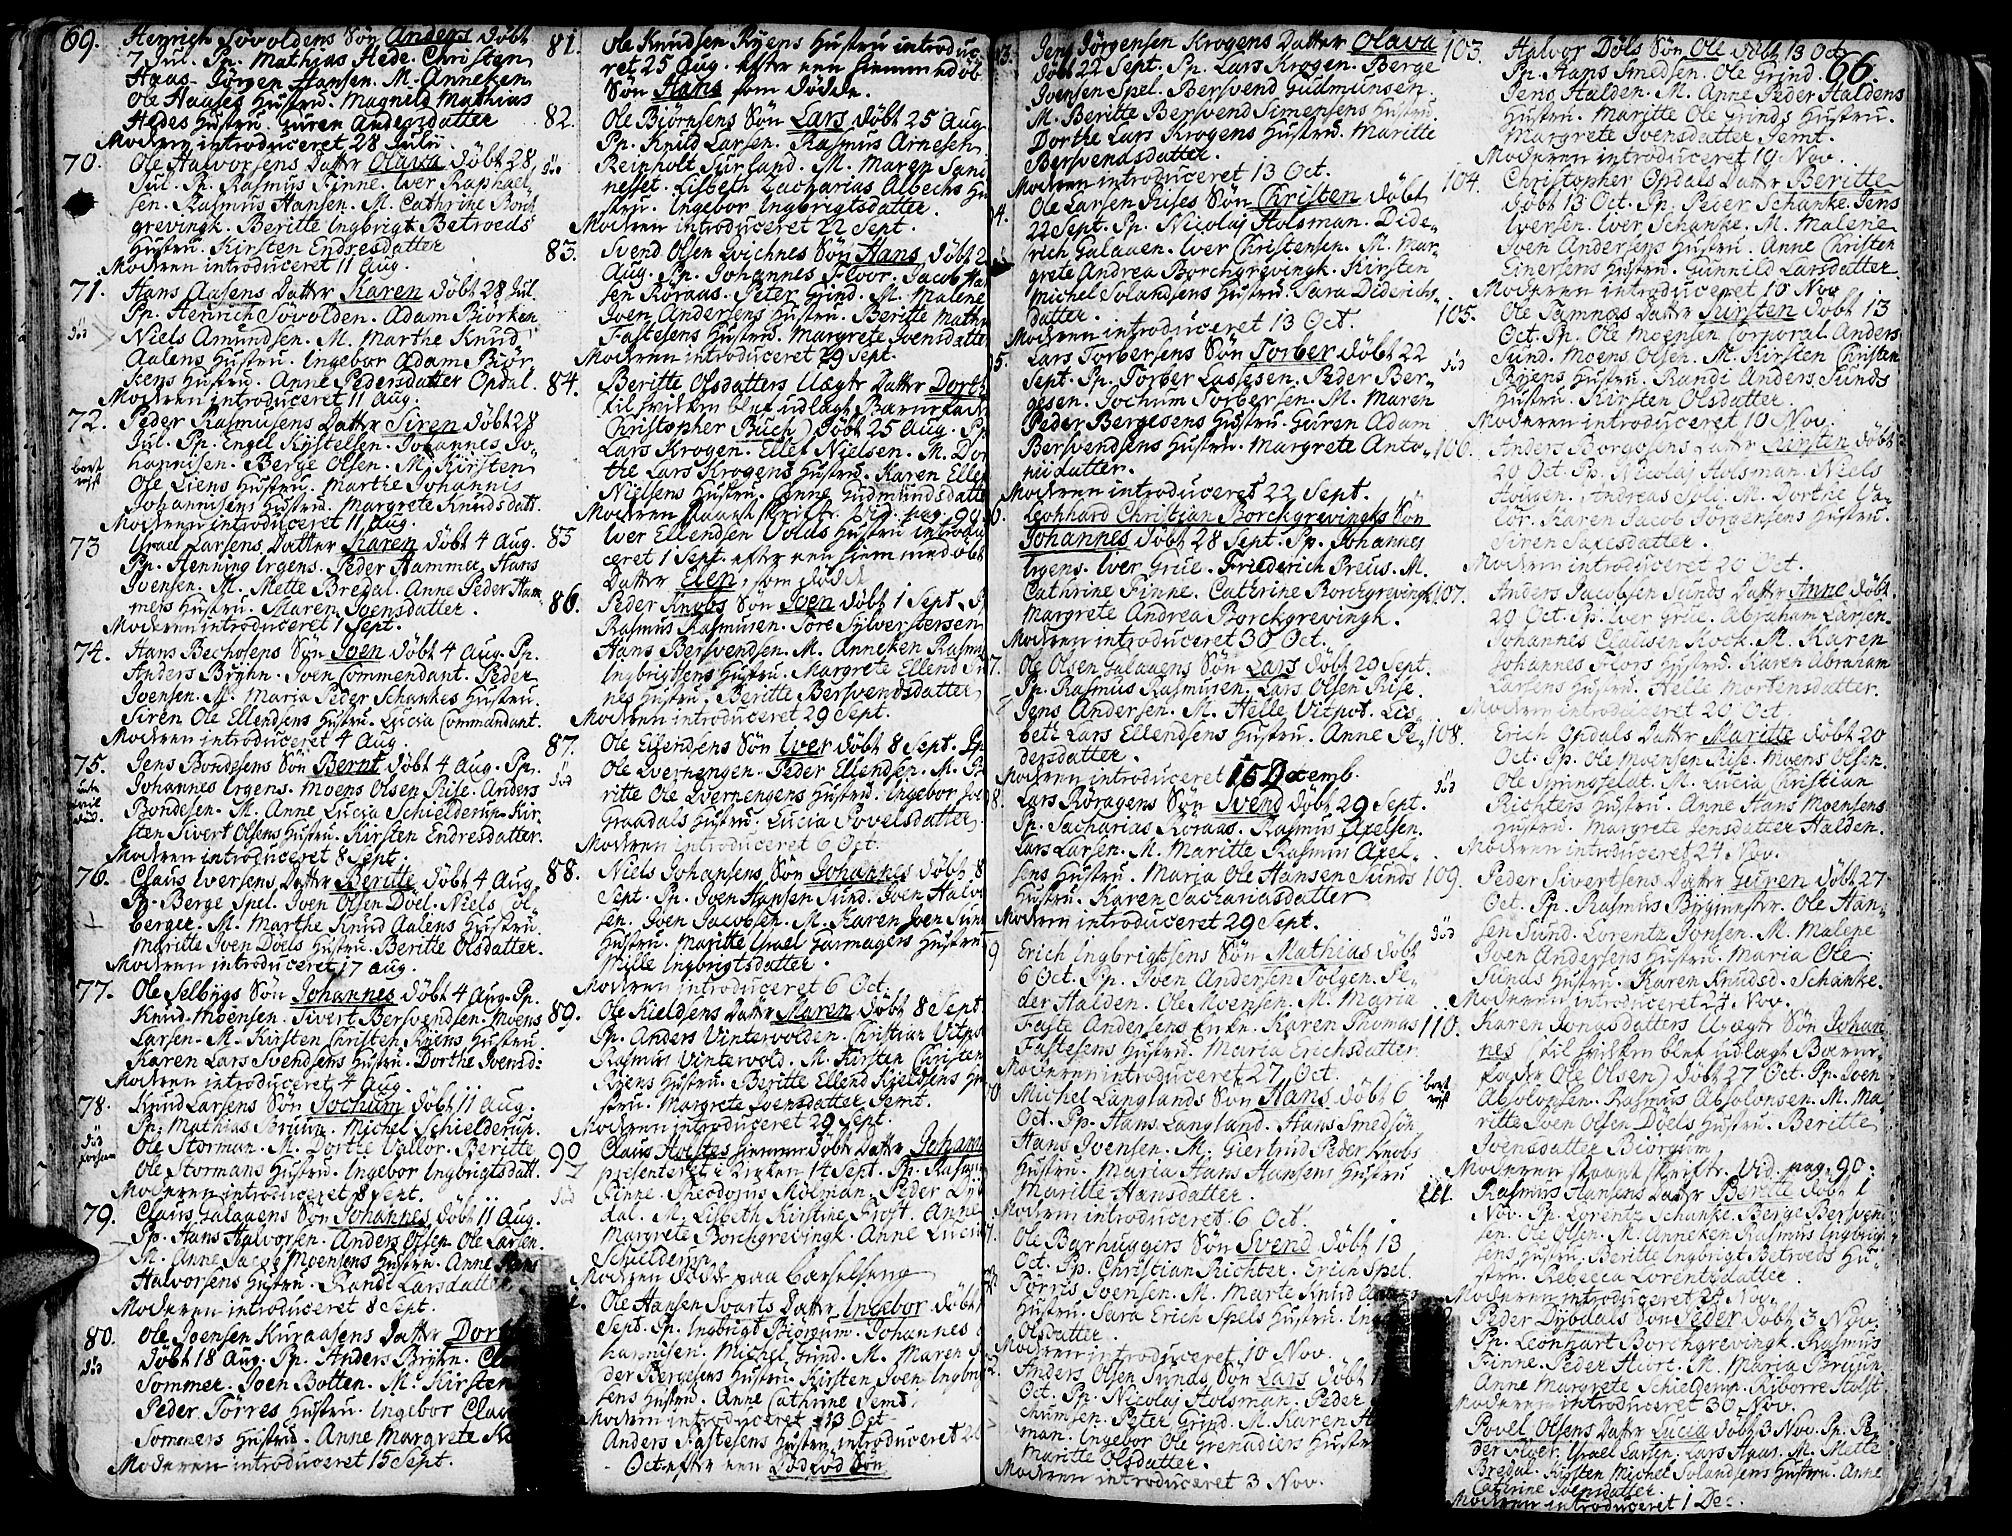 69. Henrich Sovoldens Søn Anders Døbt
7 Jul. Pp. Mathias Hede. Christen
Haas. Jørgen Hansen. M. Anneken
Ole Haases Hustru. Magnild Mathias
Hedes Hustru. Guren Andersdatter
Moderen introduceret 28 Julii.
70. Ole Halvorsens Datter Olava Døbt 28
Jul. Pp. Rasmus Finne. Iver Raphael
sen. Rasmus Hansen. M. Cathrine Borch
grevingk. Beritte Ingbrigt Betroeds
Hustru. Kirsten Endresdatter
Moderen introduceret 11 Aug.
71. Hans Aasens Datter Karen Døbt 28 Jul.
død
Pp. Henrich Sovolden. Adam Biørken
Niels Amundsen. M. Marthe Knud
Aalens Hustru. Ingebor Adam Biør
kens Hustru. Anne Pedersdatter Opdal.
Moderen introduceret 11 Aug.
72. Peder Rasmusens Datter Siren Døbt 28
Jul. Pp. Engel Kystelsen. Johannes Jo-
bort
rejst
hannisen. Berge Olsen. M. Kirsten
Ole Liens Hustru. Marthe Johannis
Johannisens Hustru. Margrete Knudsdatt.
Moderen introduceret 11 Aug.
73 Israel Larsens Datter Karen Døbt 4 Aug.
Pp. Henning Irgens. Peder Hammer. Hans
Ivensen. M. Mette Bredal. Anne Peder Ham
mers Hustru. Maren Joensdatter.
Moderen introduceret 1 Sept.
74. Hans Bechosens Søn Joen Døbt 4 Aug. Pp.
Anders Bryhn. Joen Commendant. Peder
Joensen. M. Maria Peder Schankes Hustru.
Siren Ole Ellendsens Hustru. Lucia Commandant.
Moderen introduceret 4 Aug.
75. Jens Bondesens Søn Bernt Døbt 4 Aug. Pp.
Johannes Irgens. Moens Olsen Rise. Anders
Bondesen. M. Anne Lucia Schielderup. Kir
sten Sivert Olsens Hustru. Kirsten Endresdatter.
Moderen introduceret 8 Sept.
76. Claus Iversens Datter Beritte Døbt 4 Aug.
Pp. Berge Spel. Joen Olsen Døel. Niels Sol
berger. M. Marthe Knud Aalens Hustru.
Maritte Joen Døels Hustru. Beritte Olsdatter.
Moderen introduceret 17 Aug.
77. Ole Selbygs Søn Johannes Døbt 4 Aug. Pp.
Knud Moensen. Sivert Bersvendsen. Moens
Larsen. M. Kirsten Christen Ryens Hustru.
Karen Lars Svendsens Hustru. Dorthe Joensd:
Moderen introduceret 4 Aug.
78. Knud Larsens Søn Jochum Døbt 11 Aug.
Pp. Mathias Bruun. Michel Schielderup.
død
Ole Storman. M. Dorthe Vallør. Beritte
Ole Stormans Hustru. Ingebor Ingbrigtsdatt.
Moderen introduceret 8 Sept.
79. Claus Galaaens Søn Johannes Døbt 11 Aug.
Pp. Hans Halvorsen. Anders Olsen. Ole Larsen.
M. Anne Jacob Moensens Hustru. Anne Hans
Halvorsens Hustru. Randi Larsdatter
Moderen introduceret 8 Sept.
80. Ole Joensen Kuraasens Datter
død
Døbt 18 Aug. Pp. Anders Bryhn.
Sommer. Joen Botten. M. Kirsten
Peder Tørres Hustru. Ingebor
Sommers Hustru. Anne Margrete
Moderen introduceret 15 Sept.
81. Ole Knudsen Ryens Hustru introduc
ret 25 Aug. efter een hiemmedøb
Søn Hans som Døde.
82. Ole Biørnsens Søn Lars Døbt 25 Aug
Pp. Knud Larsen. Rasmus Arnesen
død
Reinholt Surland. M. Maren Sand
nesset. Lisbeth Zacharias Albechs Hu
stru. Ingebor Ingbrigtsdatter.
Moderen introduceret 22 Sept.
83. Svend Olsen Qvichnes Søn Hans Døbt
Aug. Pp. Johannes Floor. Jacob
sen Røraas. Peter Grind. M. Malene
Joen Andersens Hustru. Beritte
Fastesens Hustru. Margrete Joensdatter
Moderen introduceret 29 Sept.
84. Beritte Olsdatters Uægte Datter
(til hvilken blef udlagt Barnefader
Christopher Buch) Døbt 25 Aug. Pp
Lars Krogen. Ellef Nielsen. M. Dor
the Lars Krogens Hustru. Karen Ellef
Nielsens Hustru. Anne Gudmundsdatter
Moderen staaet skrift. Vid. pag. 90.
85 Iver Ellendsen Volds Hustru introdu
ceret 1 Sept. efter een hiemmedøbt
Datter Elen, som døde
86. Peder Knobs Søn Joen Døbt 1 Sept. Pp
Rasmus Rasmusen. Tore Sylversten
Hans Bersvendsen. M. Anneken Rasmus
Ingbrigtsens Hustru. Margrete Ellend
nes Hustru. Beritte Bersvendsdatter
Moderen introduceret 29 Sept.
87. Ole Ellendsens Søn Iver Døbt 8 Sept. Pp
død
Ole Qvernengen. Peder Ellendsen. M. Be
ritte Ole Qvernengens Hustru. Ingebor
Graadals Hustru. Lucia Povelsdatter.
Moderen introduceret 6 Oct.
88. Niels Johansens Søn Johannes Døbt 8
Sept. Pp. Joen Hansen Sund. Joen Halvor
sen. Joen Jacobsen. M. Karen Joen Sund
Hustru. Maritte Israel Garmagers Hustru
Mille Ingbrigtsdatter.
Moderen introduceret 6 Oct.
89. Ole Kieldsens Datter Maren Døbt 8 Sept
Pp. Anders Vintervolden. Christian Vitpo
Rasmus Vintervold. M. Kirsten Christen
Ryens Hustru. Beritte Ellend Kieldsens Hu
stru. Margrete Joensdatter Jemt.
Moderen introduceret 29 Sept.
90 Claus Holstes hiemmedøbt Datter Johann
præsenteret i Kirken 14 Sept. Pp. Rasmus
død
Finne. Theodosius Molman. Peder Dyb
dal. M. Lisbeth Kirstine Frost. Anne
Margrete Borchgrevingk. Anne Lucia
Schielderup.
Moderen Døde paa barselseng
Ole Hansen Svarts Datter Ingebor Døbt
Sept. Pp. Ingbrigt Biørgum. Johannes
hannisen. Michel Grind. M. Maren
der Bergesens Hustru. Kirsten Joen Ingbrigt
sens Hustru. Anne Cathrine Jemt.
Moderen introduceret 13 Oct.
Anders Fastesens Hustru introduceret 20
Oct. efter een Dødfød Søn
66.
3. Jens Jørgensen Krogens Datter Olava
Døbt 22 Sept. Pp. Lars Krogen. Berge
Joensen Spel. Bersvend Gudmunsen.
M. Beritte Bersvend Simensens Hustru.
Dorthe Lars Krogens Hustru. Maritte
Bersvendsdatter.
Moderen introduceret 13 Oct.
4. Ole Larsen Rises Søn Christen Døbt
22 Sept. Pp. Nicolaj Holsman. Dide-
rich Galaaen. Iver Christensen. M. Mar-
grete Andrea Borchgrevingk. Kirsten
Michel Solandsens Hustru. Sara Diderichs-
datter.
Moderen introduceret 13 Oct.
5. Lars Torbersens Søn Torber Døbt 22
Sept. Pp. Torber Lassesen. Peder Ber-
gesen. Jochum Torbersen. M. Maren
Peder Bergesens Hustru. Guren Adam
Bersvendsens Hustru. Margrete Anto-
neidatter.
Moderen introduceret 22 Sept.
6. Leonhard Christian Borckgrevingks Søn
Johannes Døbt 28 Sept. Pp. Johannes
Irgens. Iver Grue. Friederich Preus. M.
Cathrine Finne. Catrine Borchgrevingk
Margrete Andrea Borckgrevingk.
Moderen introduceret 30 Oct.
7. Ole Olsen Galaaens Søn Lars Døbt 29 Sept.
Pp. Rasmus Rasmusen. Lars Olsen Rise.
Jens Andersen. M. Helle Vitpot. Lis-
bet Lars Ellendsens Hustru. Anne Pe-
dersdatter.
Moderen introduceret 15 Decemb.
8. Lars Røragens Søn Svend Døbt 29 Sept.
Pp. Zacharias Røraas. Rasmus Axelsen.
Lars Larsen. M. Maritte Rasmus Axel-
sens Hustru. Maria Ole Hansen Sunds
Hustru. Karen Zachariasdatter
Moderen introduceret 29 Sept.
9 Erich Ingbrigtsens Søn Mathias Døbt
6 Oct. Pp. Joen Andersen Tolgen. Pe-
der Halden. Ole Moensen. M. Maria
Faste Andersens Enke. Karen Thomas
Fastesens Hustru. Maria Erichsdatter
Moderen introduceret 27 Oct.
Michel Langlands Søn Hans Døbt 6
Oct. Pp. Hans Langland. Hans Smedsøn
Hans Joensen. M. Giertrud Peder Knobs
Hustru. Maria Hans Hansens Hustru
Maritte Hansdatter.
Moderen introduceret 6 Oct.
Ole Borhuggers Søn Svend Døbt 13
Oct. Pp. Christian Richter. Erich Spel.
Torris Joensen. M. Marte Knud
Hustru. Sara Erich Spels Hustru.
Olsdatter.
Moderen introduceret 10 Nov.
Anders Olsen Sunds Søn Lars Døbt
Oct. Pp. Nicolaj Holsman. Peder
chumsen. Peter Grind. M. Karen
man. Ingebor Ole Grenadiers Hustr
Maritte Olsdatter.
Moderen introduceret 3 Nov.
103. Halvor Døls Søn Ole Døbt 13 Oct.
Pp. Hans Smedsen. Ole Grind.
Jens Halden. M. Anne Peder Haldens
Hustru. Maritte Ole Grinds Hustru.
Margrete Joensdatter Jemt.
Moderen introduceret 10 Nov.
104. Christopher Opdals Datter Beritte
Døbt 13 Oct. Pp. Peder Schanke. Jens
Iversen. Iver Schanke. M. Malene
Joen Andersens Hustru. Anne Christen
Einersens Hustru. Gunnild Larsdatter
Moderen introduceret 10 Nov.
105. Ole Tamnæs Datter Kirsten Døbt 13
Oct. Pp. Ole Moensen Corporal. Anders
død
Sund. Moens Olsen. M. Kirsten Christen
Ryens Hustru. Randi Anders Sunds
Hustru. Kirsten Olsdatter.
Moderen introduceret 10 Nov.
106. Anders Borgosens Datter Kirsten Døbt
20 Oct. Pp. Nicolaj Holsman. Niels
Andreas M. Dorthe Va-
lør. Karen Jacob Jørgensens Hustru.
Siren Saxesdatter.
Moderen introduceret 20 Oct.
107. Anders Jacobsen Sunds Datter Anne Døbt
20 Oct. Pp. Iver Grue. Abraham Larsen.
Johannes Clausen Kock. M. Karen
Johannes Flors Hustru. Karen Abraham
Larsens Hustru. Helle Mortensdatter.
Moderen introduceret 20 Oct.
108. Erich Opdals Datter Maritte Døbt 20
Oct. Pp. Ole Moensen Rise. Moens Olsen.
død
Ole Springfeldt. M. Lucia Christian
Richters Hustru. Anne Hans Moensens
Hustru. Margrete Jensdatter Halden.
Moderen introduceret 24 Nov.
109. Peder Sivertsens Datter Guren Døbt 27
Oct. Pp. Rasmus Bygmester. Ole Han-
død
sen Sund. Lorentz Jonsen. M. Malene
Joen Andersens Hustru. Maria Ole
Sunds Hustru. Karen Knudsd. Schanke.
Moderen introduceret 24 Nov.
110. Karen Jonasdatters Uægte Søn Johan
nes (til hvilken blef udlagt Barne-
fader Ole Olsen) Døbt 27 Oct. Pp. Joen
bort
rejst
Absolonsen. Rasmus Absolonsen. M. Ma-
ritte Joen Olsen Døels Hustru. Beritte
Joensdatter Biørgum.
Moderen staaet skrifte. Vid. pag. 90.
111. Rasmus Hansens Datter Beritte Døbt 1
Nov. Pp. Lorentz Schanke. Berge Bersven
sen. Ole Olsen. M. Anneken Rasmus Ingbrigt
sens Hustru. Beritte Ingbrigt Betroeds Hu
stru. Rebecca Lorentzdatter.
Moderen introduceret 24 Nov.
Peder Dybdals Søn Peder Døbt 3 Nov.
Pp. Leonhart Borchgrevingk. Rasmus
Finne. Peder Hiort. M. Maria Bruun
Anne Margrete Schielderup. Riborre Holst
Moderen introduceret 30 Nov.
Povel Olsens Datter Lucia Døbt 3 Nov. Pp. Pe-
der Floer. Israel Larsen. Lars Haas. M. Mette
Bredal. Kirsten Michel Solandsens Hustru. Anne
Cathrine Joensdatter.
Moderen introduceret 1 Dec.